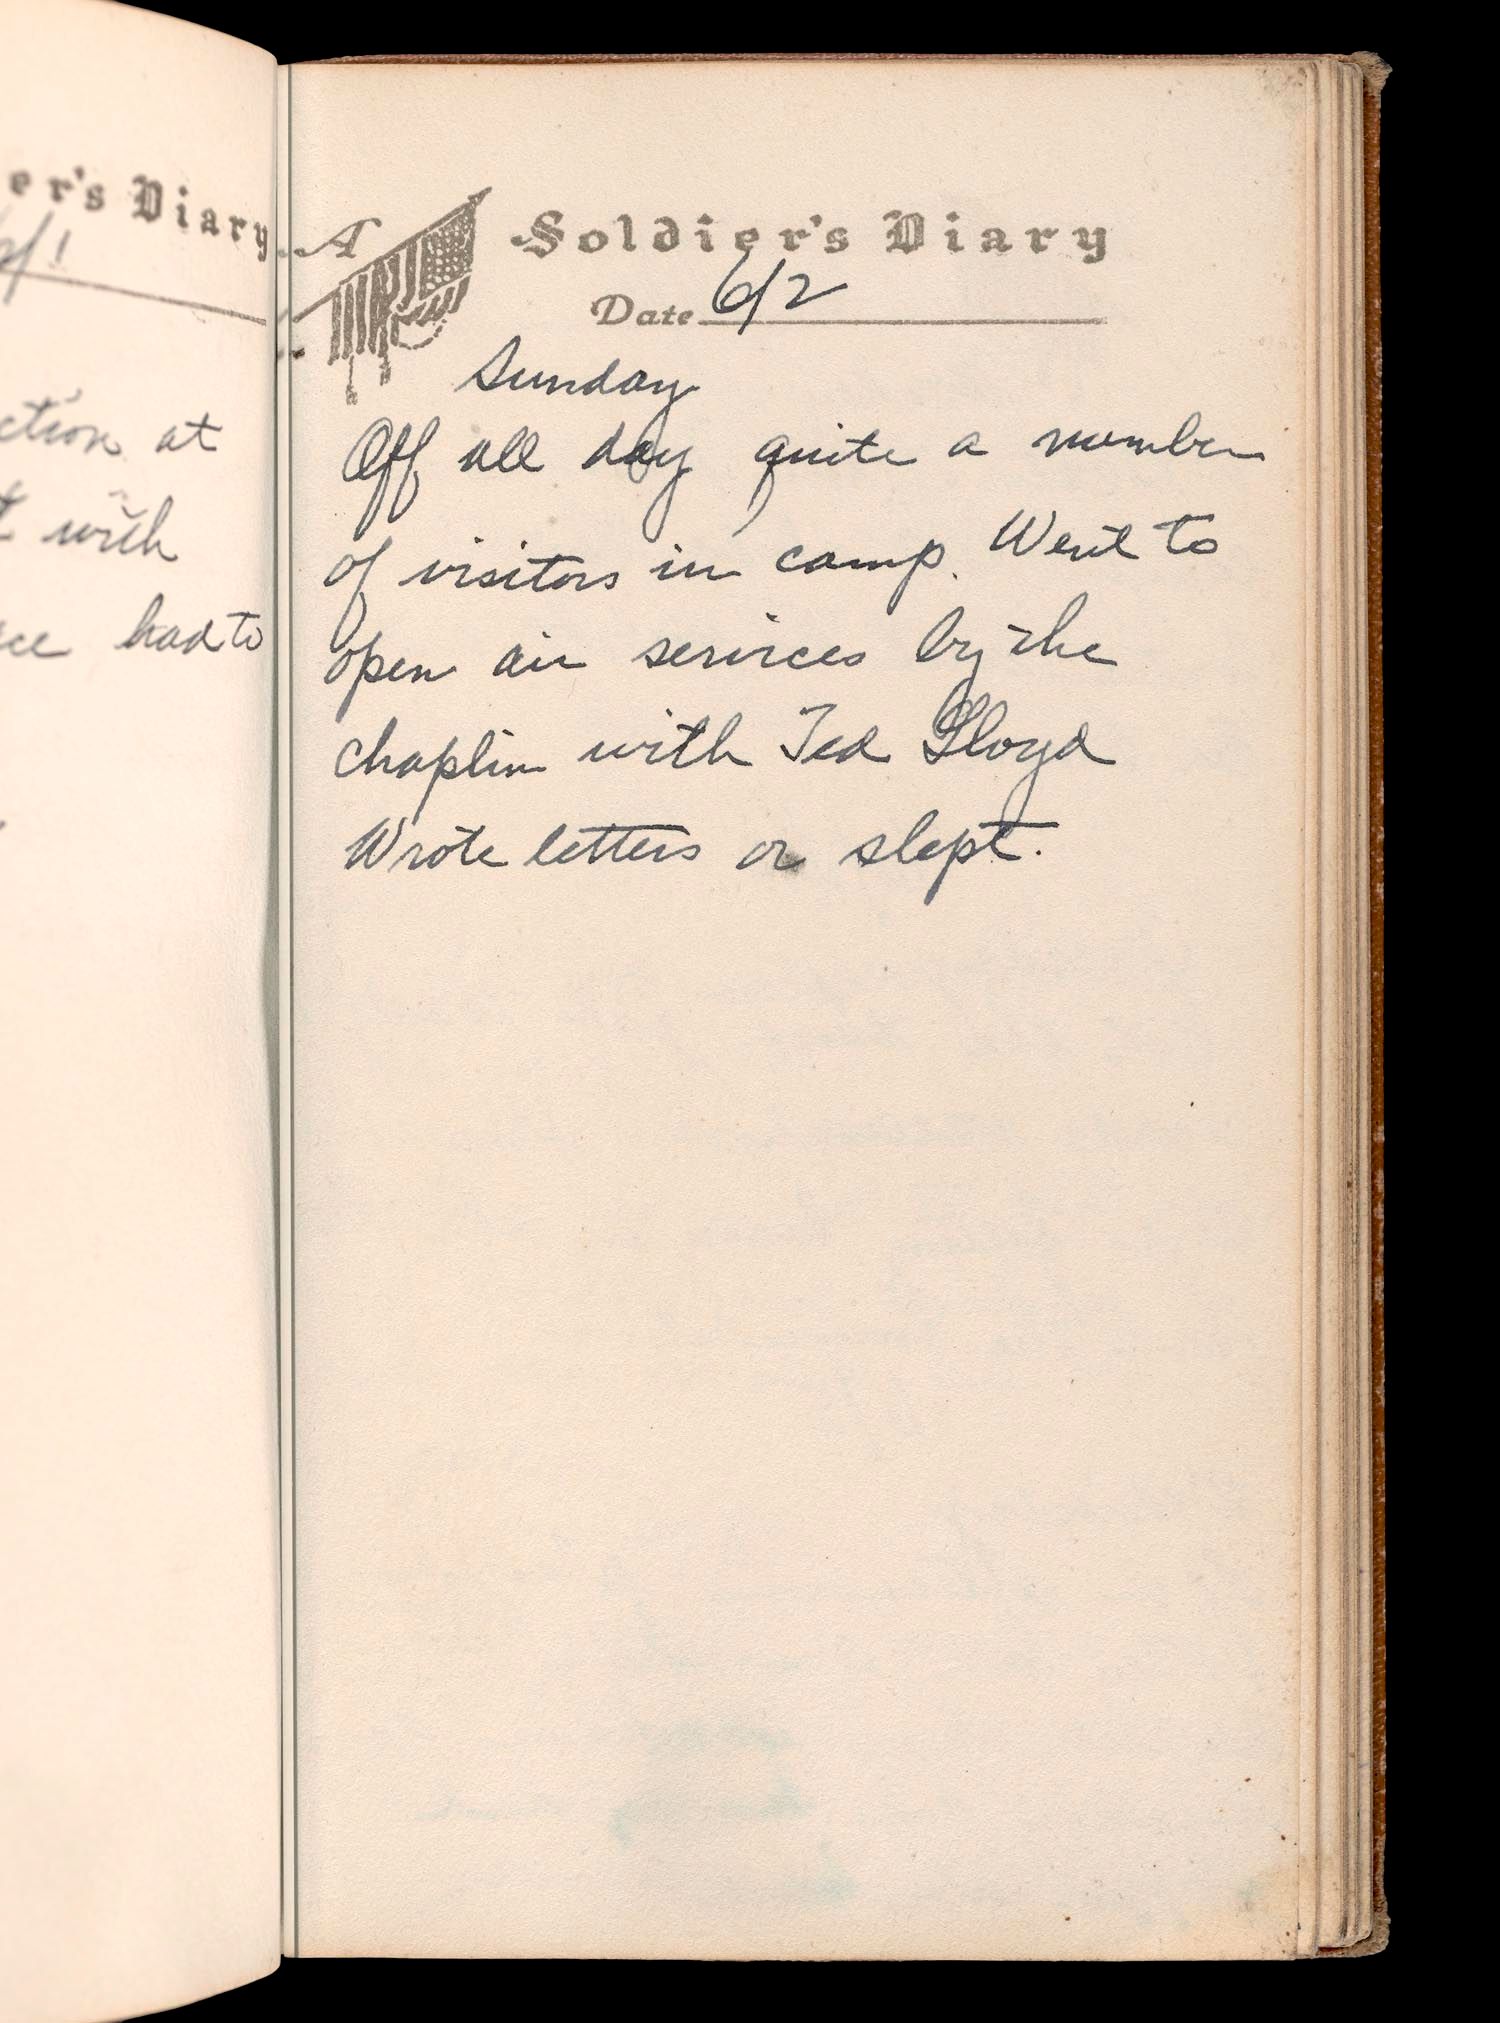 er's Diary
6/1
ction at
with
had to
A Soldier's Diary
Date 6/2
Sunday
Off all day quite a number
of visitors in camp. Went to
open air services by the
chaplin with Ted Lloyd
Wrote letters or slept.